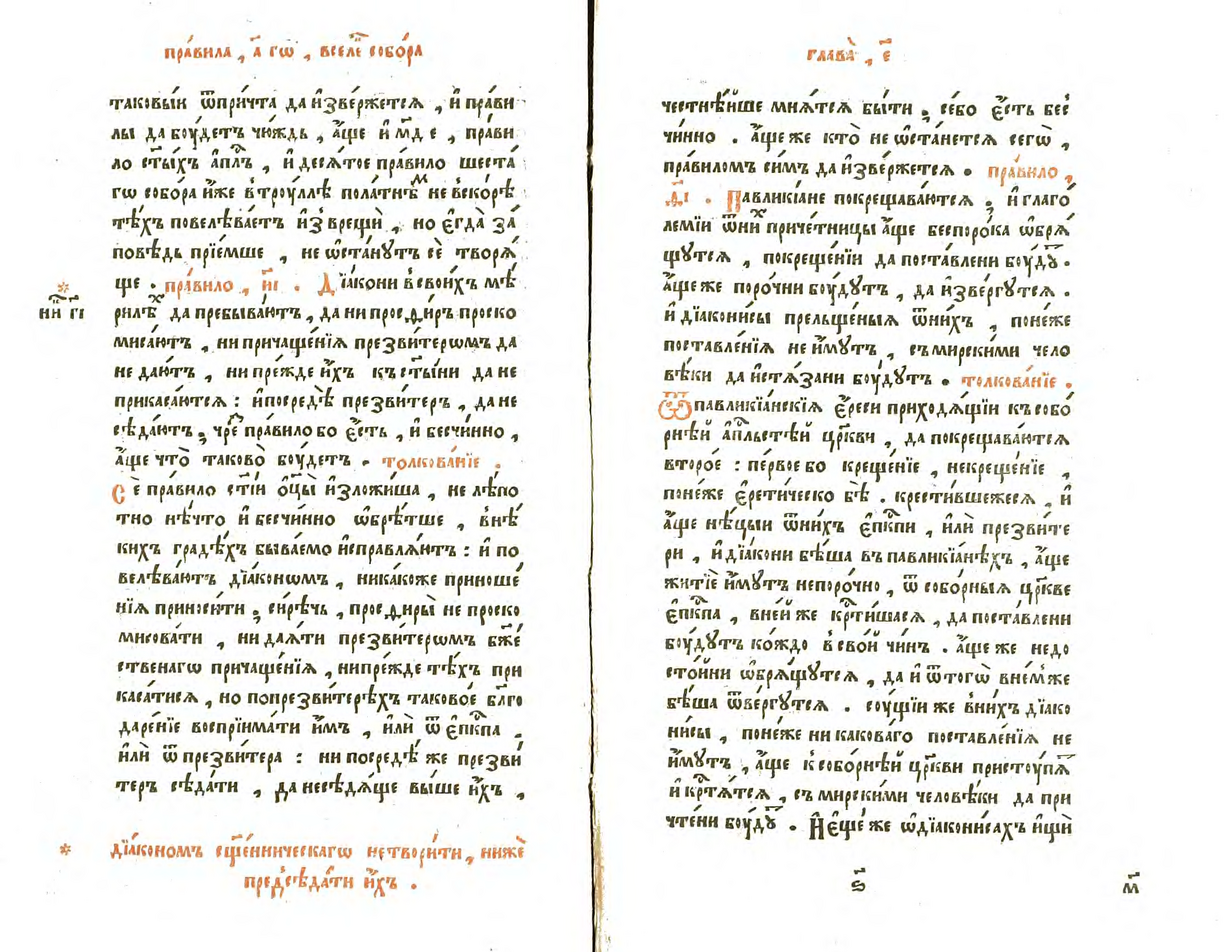 пра́вила , а҃ гѡ , вселе́ собо́ра
таковы́и ѿпри́чта да и҆зве́ржетсѧ , и҆ пра́ви
лы да бꙋ́детъ чю́ждь , а҆́ще и҆ м҃д е , пра́ви
ло ст҃ы́хъ а҆пл҃ъ , и҆ десѧ́тое пра́вило шеста́
гѡ собо́ра и҆́же в̾трꙋ́ллѣ пола́тнѣм не в̾ско́рѣ
тѣ́хъ повелѣва́етъ и҆з̾ врещѝ , но є҆гда̀ за́
повѣдь прїе́мше , не ѡ҆ста́нꙋтъ сѐ творѧ́
ще . пра́вило , и҃і . Дїа́кони в̾свои́хъ мѣ́
рилѣх да пребыва́ютъ , да ни просфи́ръ проско
миса́ютъ , ни причаще́нїѧ презви́терѡмъ да
не даю́тъ , ни пре́жде и҆́хъ къ ст҃ы́ни да не
прикаса́ютсѧ : и҆посредѣ̀ презви́теръ , да не
сѣ́даютъ , чре́с пра́вило бо є҆́сть , и҆ бесчи́нно ,
а҆́ще что̀ таково̀ бꙋ́детъ . толкова́нїе .
Сѐ пра́вило ст҃і́и ѻ҆ц҃ы̀ и҆зложи́ша , не лѣ́по
тно нѣ́что и҆ бесчи́нно ѡ҆брѣ́тше , в̾нѣ́
кихъ градѣ́хъ быва́емо и҆справлѧ́ютъ : и҆ по
велѣва́ютъ дїа́конѡмъ , ника́коже приноше́
нїѧ приноси́ти , сирѣ́чь , просфиры̀ не проско
мисова́ти , ни даѧ́ти презви́терѡмъ бж҃е́
ственагѡ причаще́нїѧ , нипре́жде тѣ́хъ при
каса́тисѧ , но попрезви́терѣхъ таково́е бл҃го
даре́нїе воспрїима́ти и҆́мъ , и҆лѝ ѿ є҆пк҃па .
и҆лѝ ѿ презви́тера : ни посредѣ́ же презви́
теръ сѣда́ти , да несѣдѧ́ще вы́ше и҆́хъ ,
* ни́к гі
* дїа́кономъ сщ҃е́нническагѡ нетвори́ти , нижѐ
пред̾сѣда́ти и҆́хъ .
глава̀ , є҃
честнѣ́йше мнѧ́тсѧ бы́ти , се́бо є҆́сть бес
чи́нно . а҆́ще же кто̀ не ѡ҆ста́нетсѧ сегѡ̀ ,
пра́виломъ си́мъ да и҆зве́ржетсѧ . пра́вило ,
ѳ҃і . Павликїа́не покрещава́ютсѧ , и҆ глаго́
лемїи ѿни́х приче́тницы а҆́ще беспоро́ка ѡ҆брѧ́
щꙋтсѧ , покреще́нїи да поста́влени бꙋ́дꙋ .
а҆́ще же поро́чни бꙋ́дꙋтъ , да и҆зве́ргꙋтсѧ .
и҆ дїакони́сы прельще́ныѧ ѿни́хъ , поне́же
поставле́нїѧ не и҆́мꙋтъ , съ мирски́ми чело
вѣ́ки да и҆стѧ́зани бꙋ́дꙋтъ . толкова́нїе .
Ѿ павликїа́нскїѧ є҆́реси приходѧ́щїи къ собо́
рнѣй а҆пл҃ьстѣ́й цр҃кви , да покрещава́ютсѧ
второ́е : пе́рвое бо креще́нїе , некреще́нїе ,
поне́же є҆рети́ческо бѣ̀ . крести́вшежесѧ , и҆
а҆́ще нѣ́цыи ѿни́хъ є҆пк҃пи , и҆лѝ презви́те
ри , и҆ дїа́кони бѣ́ша въ павликїа́нѣхъ , а҆́ще
житїѐ и҆́мꙋтъ непоро́чно , ѿ собо́рныѧ цр҃кве
є҆пк҃па , вне́й же кр҃ти́шасѧ , да поста́влени
бꙋ́дꙋтъ ко́ждо в̾ сво́й чи́нъ . а҆́ще же недо
сто́йни ѡ҆брѧ́щꙋтсѧ , да и҆ ѿтогѡ̀ вне́мже
бѣ́ша ѿве́ргꙋтсѧ . сꙋ́щїи же вни́хъ дїако
ни́сы , поне́же ни какова́го поставле́нїѧ не
и҆́мꙋтъ , а҆́ще к̾собо́рнѣй цр҃кви пристꙋ́пѧ
и҆ кр҃тѧ́тсѧ , съ мирски́ми человѣ́ки да при
чте́ни бꙋ́дꙋ . И҆ є҆ще́ же ѡ҆дїакони́сахъ и҆щѝ
ѕ҃
м҃